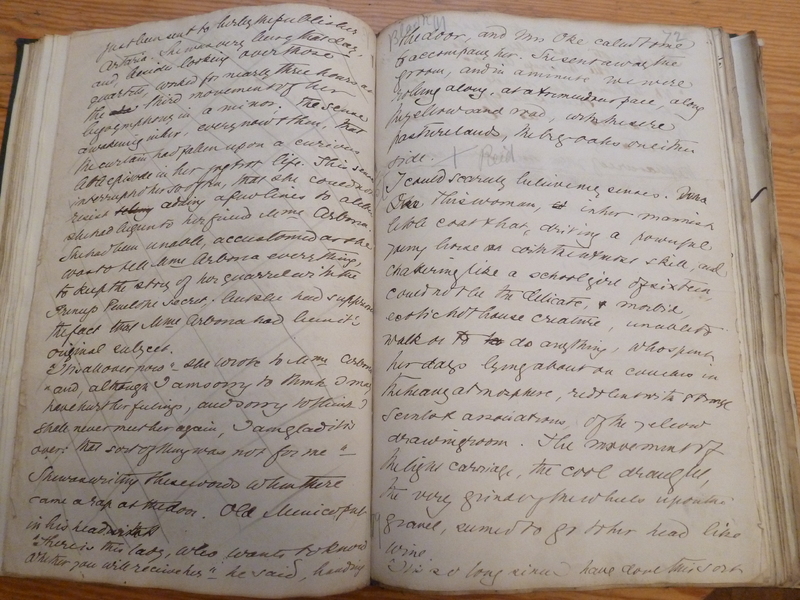 just been sent to her by the publisher
Artaria. She was very busy that day,
and besides looking over those
quartets, worked for nearly three hours at
the third movement of her
symphony in a minor. The sense
awakening in her, every now & then, that
the curtain had fallen upon a curious
little episode in her life. This sense
interrupted her so often, that she could not
resist adding a few lines to a letter
she had begun to her friend Mme Arbona.
She had been unable, accustomed as she
was to tell Mme Arbona everything,
to keep the story of her quarrel with the
secret: but she had suppressed
the fact that Mme Arbona had been its
original subject.
"It is all over now" she wrote to Mme Arbona
"and, although I am sorry to think I may
have hurt her feelings, and sorry to think I
shall never meet her again, I am glad it is
over: that sort of thing was not for me"—
She was writing these words when there
came a rap at the door. Old Menico put
in his head
"There is this lady, who wants to know
whether you will receive her" he said, handing
72
the door, and Mrs Oke called to me
to accompany her. She sent away the
groom, and in a minute we were
rolling along, at a tremendous pace, along
the yellow sand road, with the sere
pasturelands, the big oaks on either
side.
I could scarcely believe my senses.
this woman, in her mannish
little coat & hat, driving a powerful
young horse with the utmost skill, and
chattering like a school girl of sixteen
could not be the delicate, morbid,
exotic, hothouse creature, unable to
walk or to do anything, who spent
her days lying about on couches in
the heavy atmosphere, redolent with strange
scents & associations, of the yellow
drawingroom. The movement of
the light carriage, the cool draught,
the very grind of the wheels upon the
gravel, seemed to go to her head like
wine.
"It is so long since I have done this sort